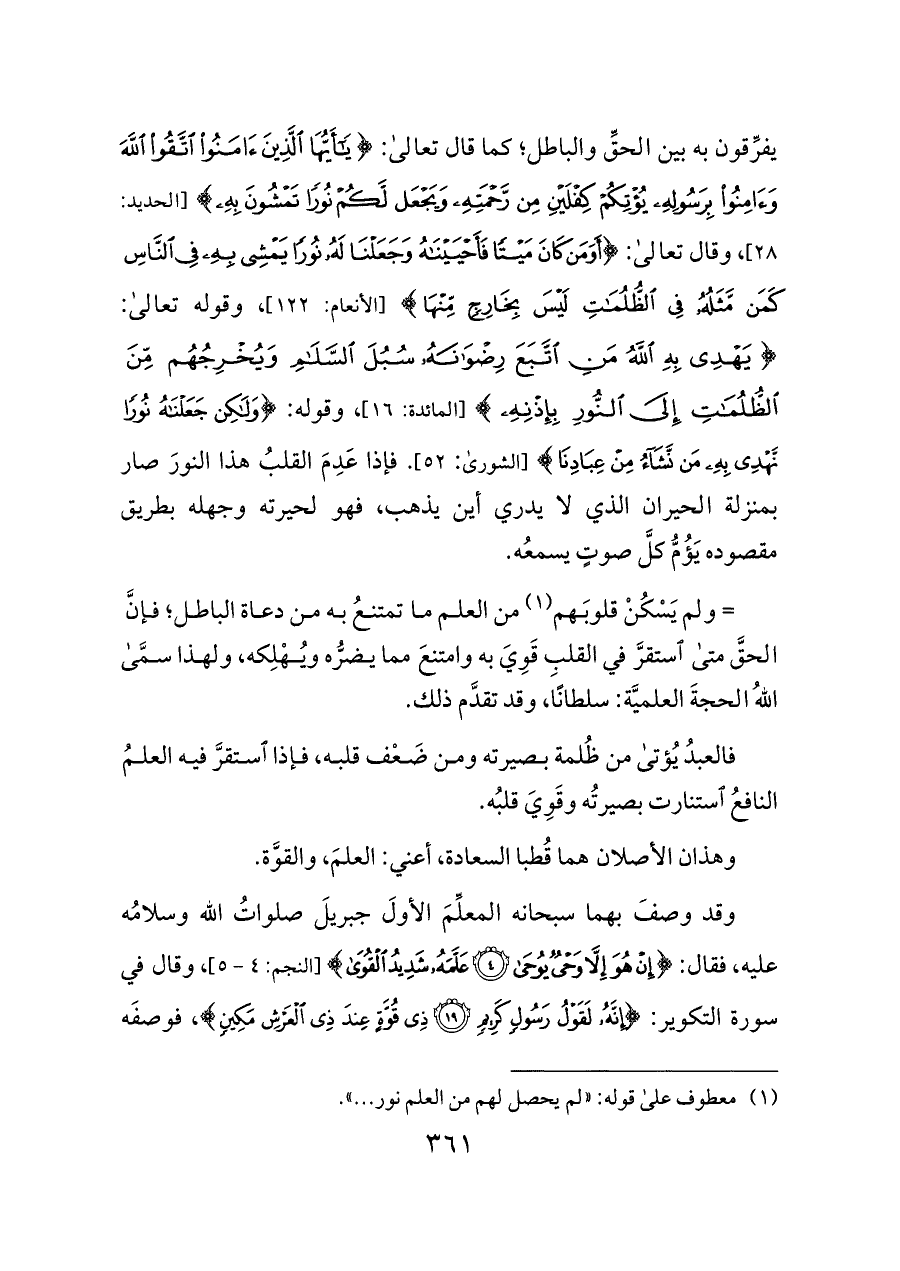 يفرِّقون به بين الحقِّ والباطل؛ كما قال تعالىٰ: ﴿يَٰٓأَيُّهَا ٱلَّذِينَ ءَامَنُوا۟ ٱتَّقُوا۟ ٱللَّهَ
وَءَامِنُوا۟ بِرَسُولِهِۦ يُؤْتِكُمْ كِفْلَيْنِ مِن رَّحْمَتِهِۦ وَيَجْعَل لَّكُمْ نُورًا تَمْشُونَ بِهِۦ﴾ [الحديد:
٢٨]، وقال تعالىٰ: ﴿أَوَمَن كَانَ مَيْتًا فَأَحْيَيْنَٰهُ وَجَعَلْنَا لَهُۥ نُورًا يَمْشِى بِهِۦ فِى ٱلنَّاسِ
كَمَن مَّثَلُهُۥ فِى ٱلظُّلُمَٰتِ لَيْسَ بِخَارِجٍ مِّنْهَا﴾ [الأنعام: ١٢٢]، وقوله تعالىٰ:
﴿يَهْدِى بِهِ ٱللَّهُ مَنِ ٱتَّبَعَ رِضْوَٰنَهُۥ سُبُلَ ٱلسَّلَٰمِ وَيُخْرِجُهُم مِّنَ
ٱلظُّلُمَٰتِ إِلَى ٱلنُّورِ بِإِذْنِهِۦ﴾ [المائدة: ١٦]، وقوله: ﴿وَلَٰكِن جَعَلْنَٰهُ نُورًا
نَّهْدِى بِهِۦ مَن نَّشَآءُ مِنْ عِبَادِنَا﴾ [الشورىٰ: ٥٢]. فإذا عَدِمَ القلبُ هذا النورَ صار
بمنزلة الحيران الذي لا يدري أين يذهب، فهو لحيرته وجهله بطريق
مقصوده يَؤُمُّ كلَّ صوتٍ يسمعُه.
= ولم يَسْكُنْ قلوبَهم(١) من العلم ما تمتنعُ به من دعاة الباطل؛ فإنَّ
الحقَّ متىٰ ٱستقرَّ في القلبِ قَوِيَ به وامتنعَ مما يضرُّه ويُهْلِكه، ولهذا سمَّىٰ
اللهُ الحجةَ العلميَّة: سلطانًا، وقد تقدَّم ذلك.
فالعبدُ يُؤتىٰ من ظُلمة بصيرته ومن ضَعْف قلبه، فإذا ٱستقرَّ فيه العلمُ
النافعُ ٱستنارت بصيرتُه وقَوِيَ قلبُه.
وهذان الأصلان هما قُطبا السعادة، أعني: العلمَ، والقوَّة.
وقد وصفَ بهما سبحانه المعلِّمَ الأولَ جبريلَ صلواتُ الله وسلامُه
عليه، فقال: ﴿إِنْ هُوَ إِلَّا وَحْىٌ يُوحَىٰ ٤ عَلَّمَهُۥ شَدِيدُ ٱلْقُوَىٰ﴾ [النجم: ٤ - ٥]، وقال في
سورة التكوير: ﴿إِنَّهُۥ لَقَوْلُ رَسُولٍ كَرِيمٍ ١٩ ذِى قُوَّةٍ عِندَ ذِى ٱلْعَرْشِ مَكِينٍ﴾، فوصفَه
(١) معطوف علىٰ قوله: «لم يحصل لهم من العلم نور...».
٣٦١